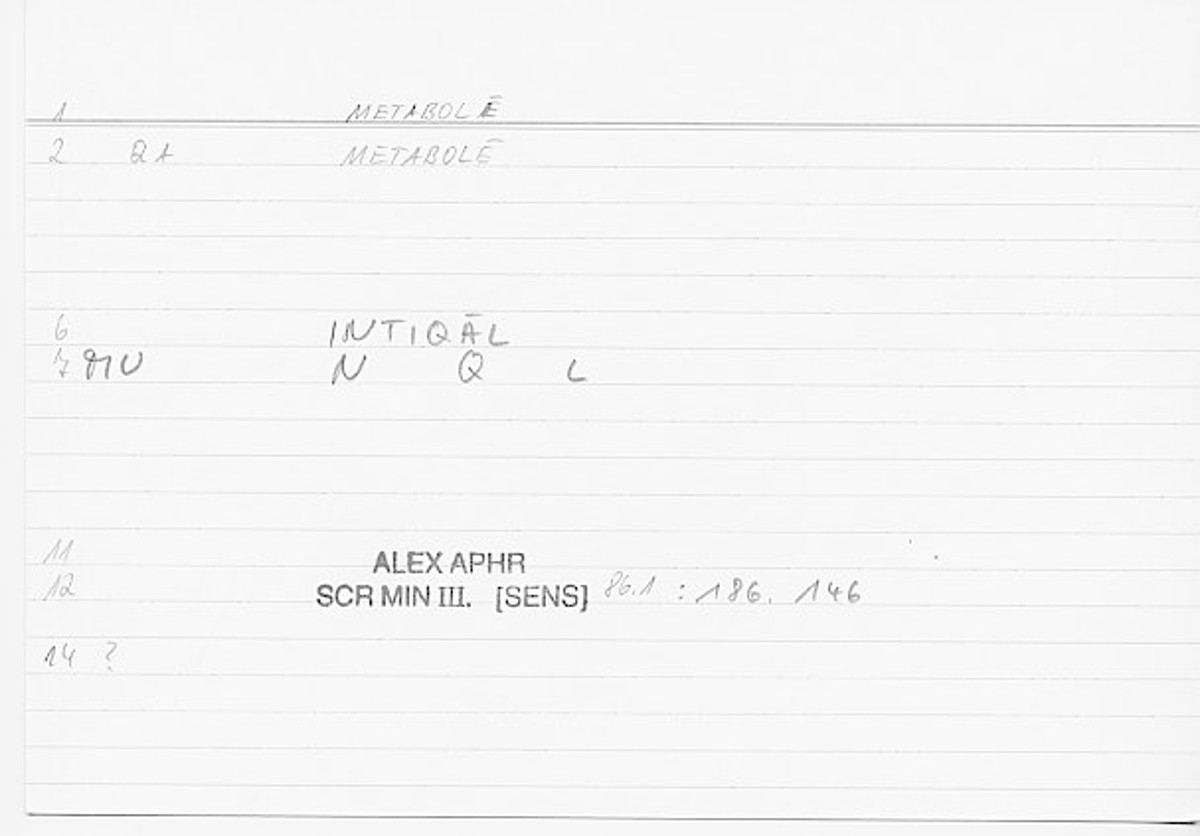 1 METABOLĒ
2 QA METABOLĒ
6 INTIQĀL
7 N Q L
11 ALEX APHR
12 SCR MIN III. [SENS] 86.1 : 186. 146
14 ?